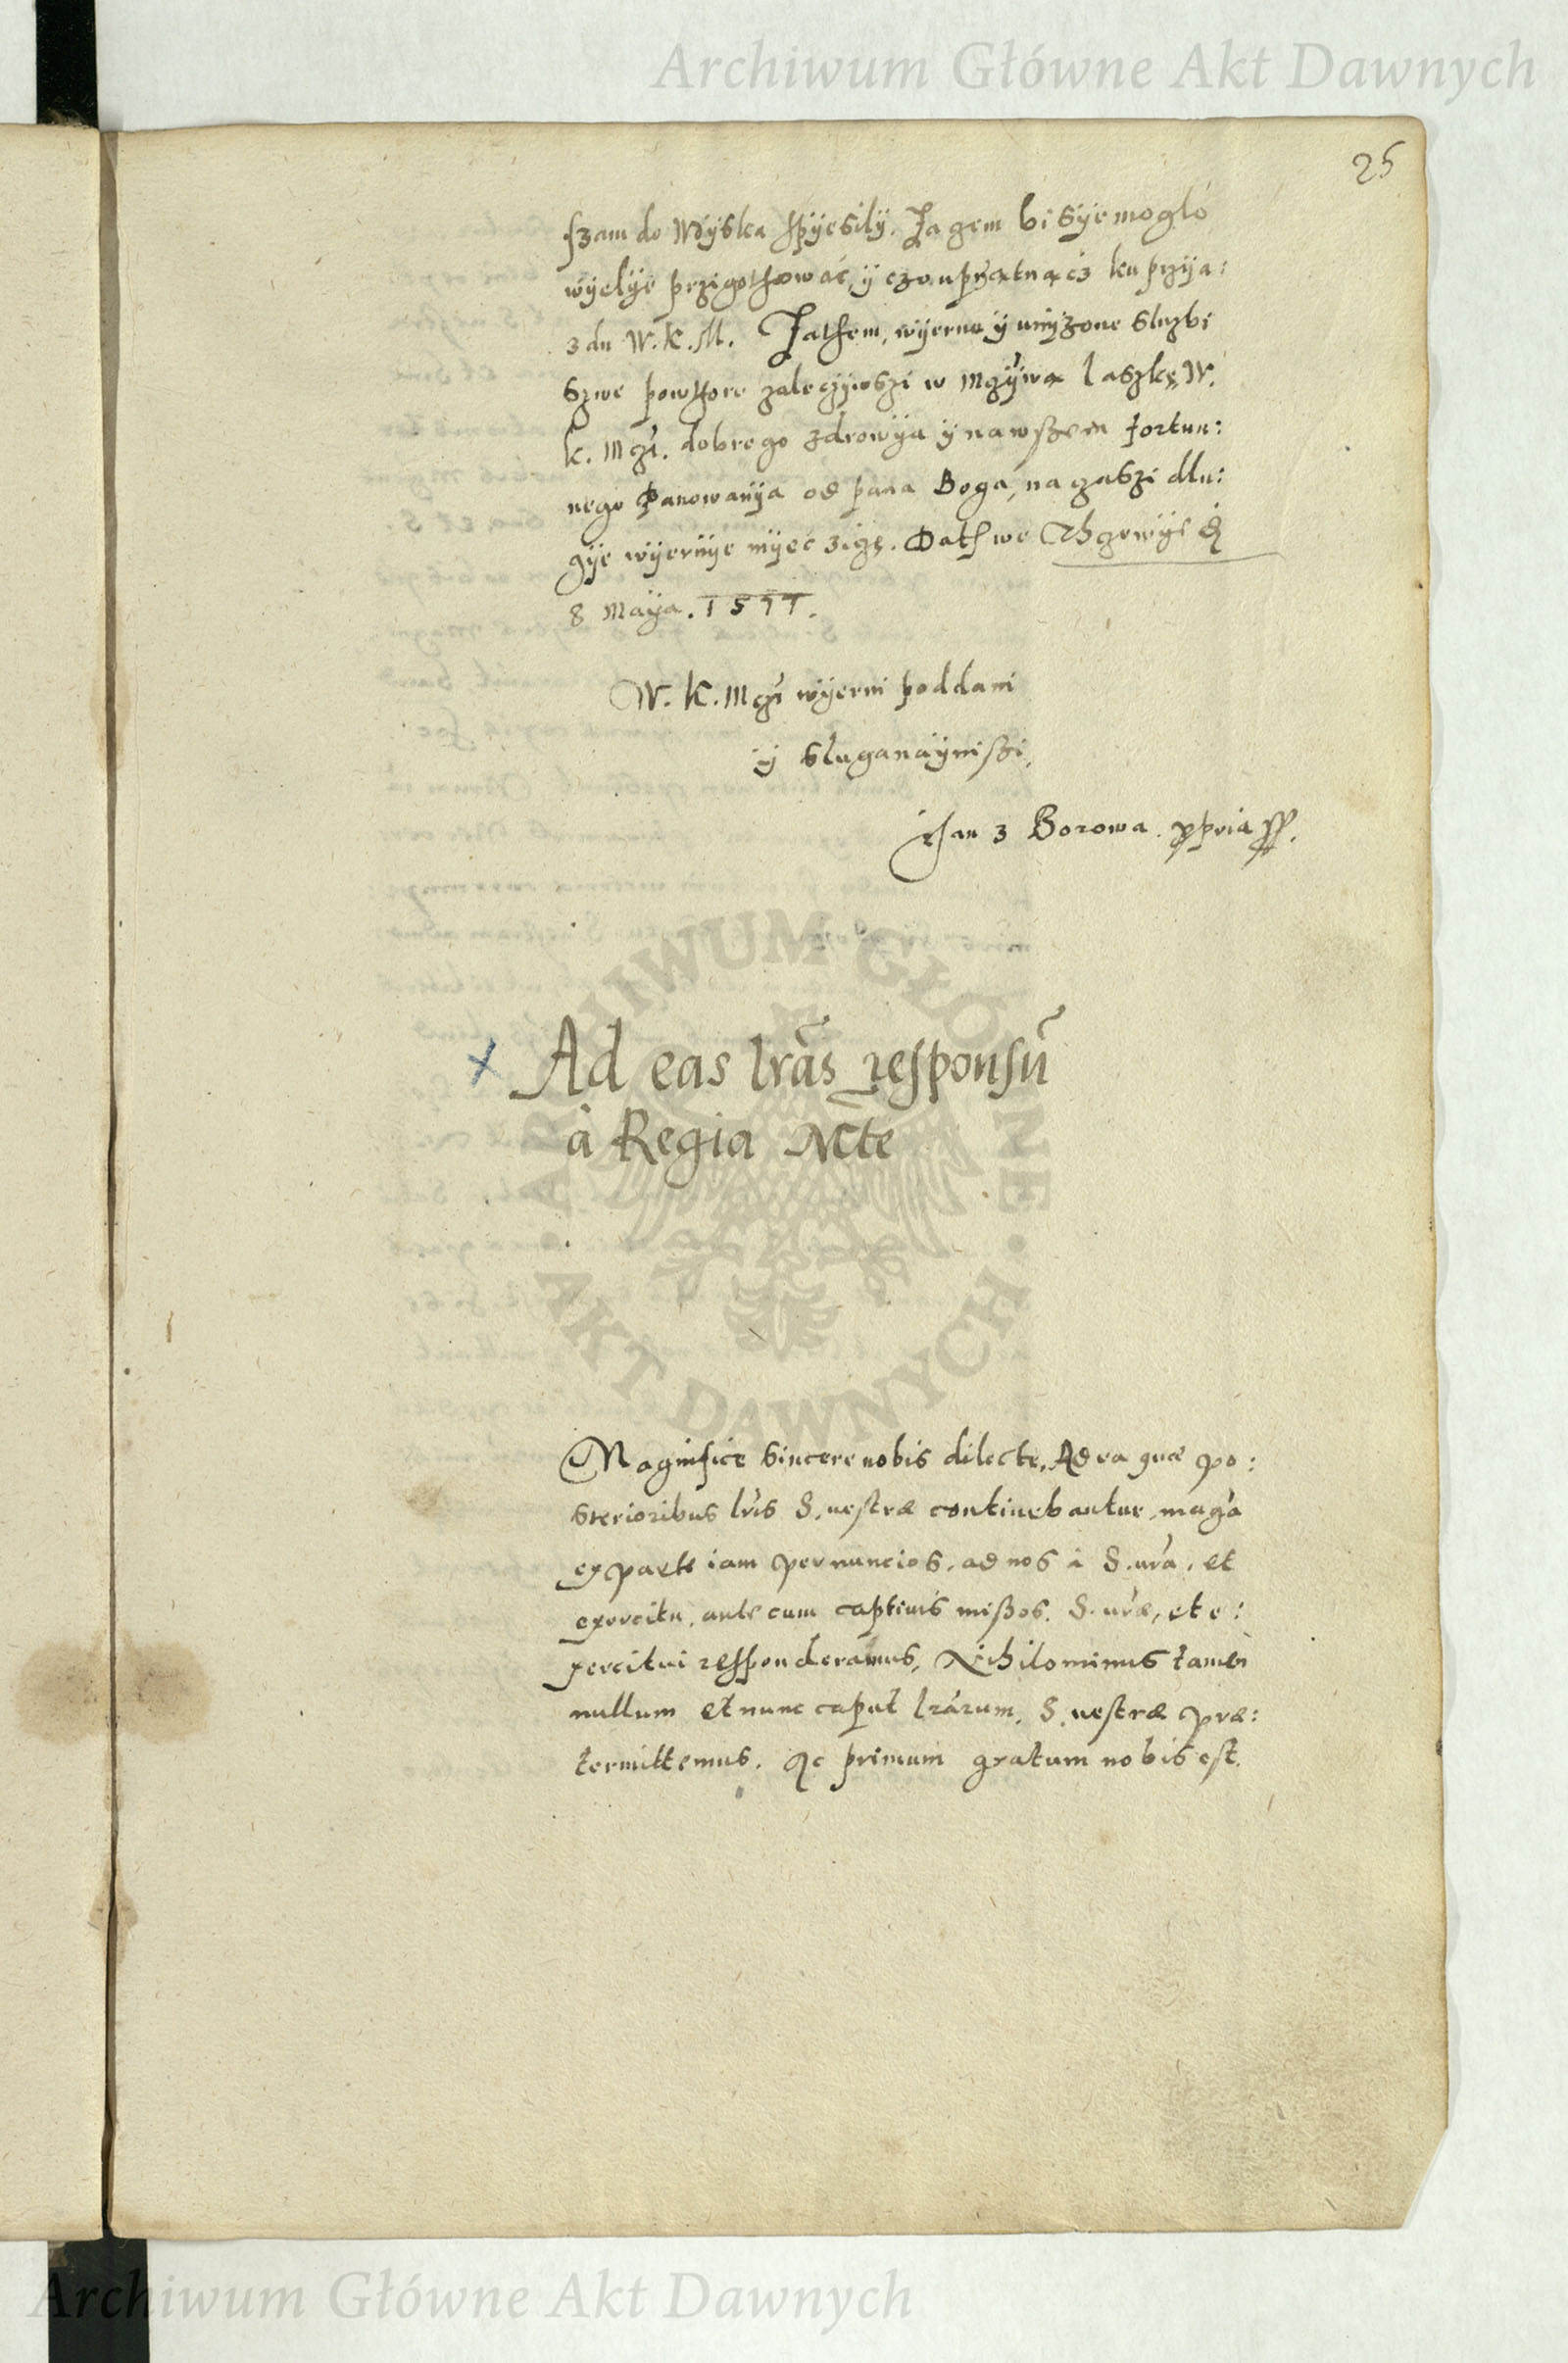 Archiwum Główne Akt Dawnych
25
szam do Wÿska spÿesilÿ. Zagem bi sÿe moglo
wÿelÿe przigothowac, ÿ czo uprzątnącz ku przÿa:
zdu W. K. M. Zathem, wÿerne ÿ unÿzone sluzbi
szwe powthore zaleczÿwszi w mczÿwą laszkę W.
k. mczi. dobrego zdrowÿa ÿ nawszem fortun:
nego panowanÿa od pana Boga, na czaszi dlu:
gÿe wÿernÿe mÿec zicę. Dath we
8 Maÿa. 1577.
W. K. Mczi wÿerni poddani
ÿ sluga naÿniszi.
Jan z Borowa. ppria ss.
Ad eas lras responsū
à Regia Mte
Magnifice sincere nobis dilecte, Ad ea quæ po:
sterioribus lris S. vestræ continebantur, magna
ex parte iam per nuncios, ad nos à S. vra, et
exercitu, ante cum captivis missos. S. vræ, et e:
xercitui responderamus, Nihilominus tamen
nullum et nunc caput lrarum, S. vestræ præ:
termittemus. Ac primum gratum nobis est.
ARCHIWUM GŁÓWNE • AKT DAWNYCH •
Archiwum Główne Akt Dawnych